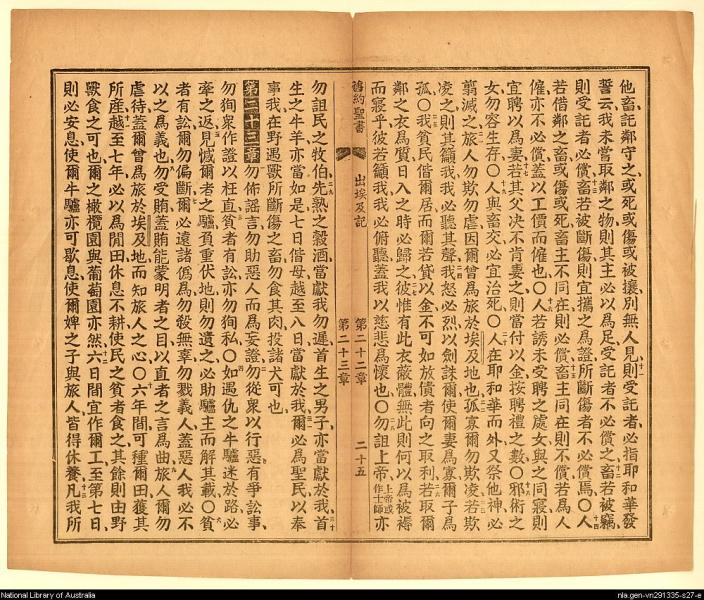 他畜託鄰守之或死或傷或被攘別無人見則受託者必指耶和華發
誓云我未嘗取鄰之物則其主必以爲足受託者不必償之畜若被竊
則受託者必償畜若被斷傷則宜攜之爲證所斷傷者不必償焉〇人
若借鄰之畜或傷或死畜主不同在則必償畜主同在則不償若爲人
僱亦不必償蓋以工價而僱也〇人若誘未受聘之處女與之同寢則
宜聘以爲妻若其父決不肯妻之則當付以金按聘禮之數〇邪術之
女勿容生存〇人與畜交必宜治死〇人在耶和華而外又祭他神必
翦滅之旅人勿欺勿虐因爾曾爲旅於埃及地也孤寡爾勿欺凌若欺
凌之則其籲我我必聽其聲我怒必烈以劍誅爾使爾妻爲寡爾子爲
孤〇我貧民偕爾居而爾若貸以金不可如放債者向之取利若取爾
鄰之衣爲質日入之時必歸之彼惟有此衣蔽體無此則何以爲被褥
而寢乎彼若籲我我必俯聽蓋我以慈悲爲懷也〇勿詛上帝上帝或作士師亦
舊約聖書 出埃及記 第二十二章 第二十三章 二十五
勿詛民之牧伯先熟之穀酒當獻我勿遲首生之男子亦當獻於我首
生之牛羊亦當如是七日偕母越至八日當獻於我爾必爲聖民以奉
事我在野遇獸所斷傷之畜勿食其肉投諸犬可也
第二十三章 勿佈謠言勿助惡人而爲妄證勿從衆以行惡有爭訟事
勿徇衆作證以枉直貧者有訟亦勿徇私〇如遇仇之牛驢迷於路必
牽之返見憾爾者之驢負重伏地則勿遺之必助驢主而解其載〇貧
者有訟爾勿偏斷爾必遠諸僞爲勿殺無辜勿戮義人蓋惡人我必不
以之爲義也勿受賄蓋賄能蒙明者之目以直者之言爲曲旅人爾勿
虐待蓋爾曾爲旅於埃及地而知旅人之心〇六年間可種爾田獲其
所產越至七年必以爲閒田休息不耕使民之貧者食之其餘則由野
獸食之可也爾之橄欖園與葡萄園亦然六日間宜作爾工至第七日
則必安息使爾牛驢亦可歇息使爾婢之子與旅人皆得休養凡我所
National Library of Australia
nla.gen-vn291335-s27-e